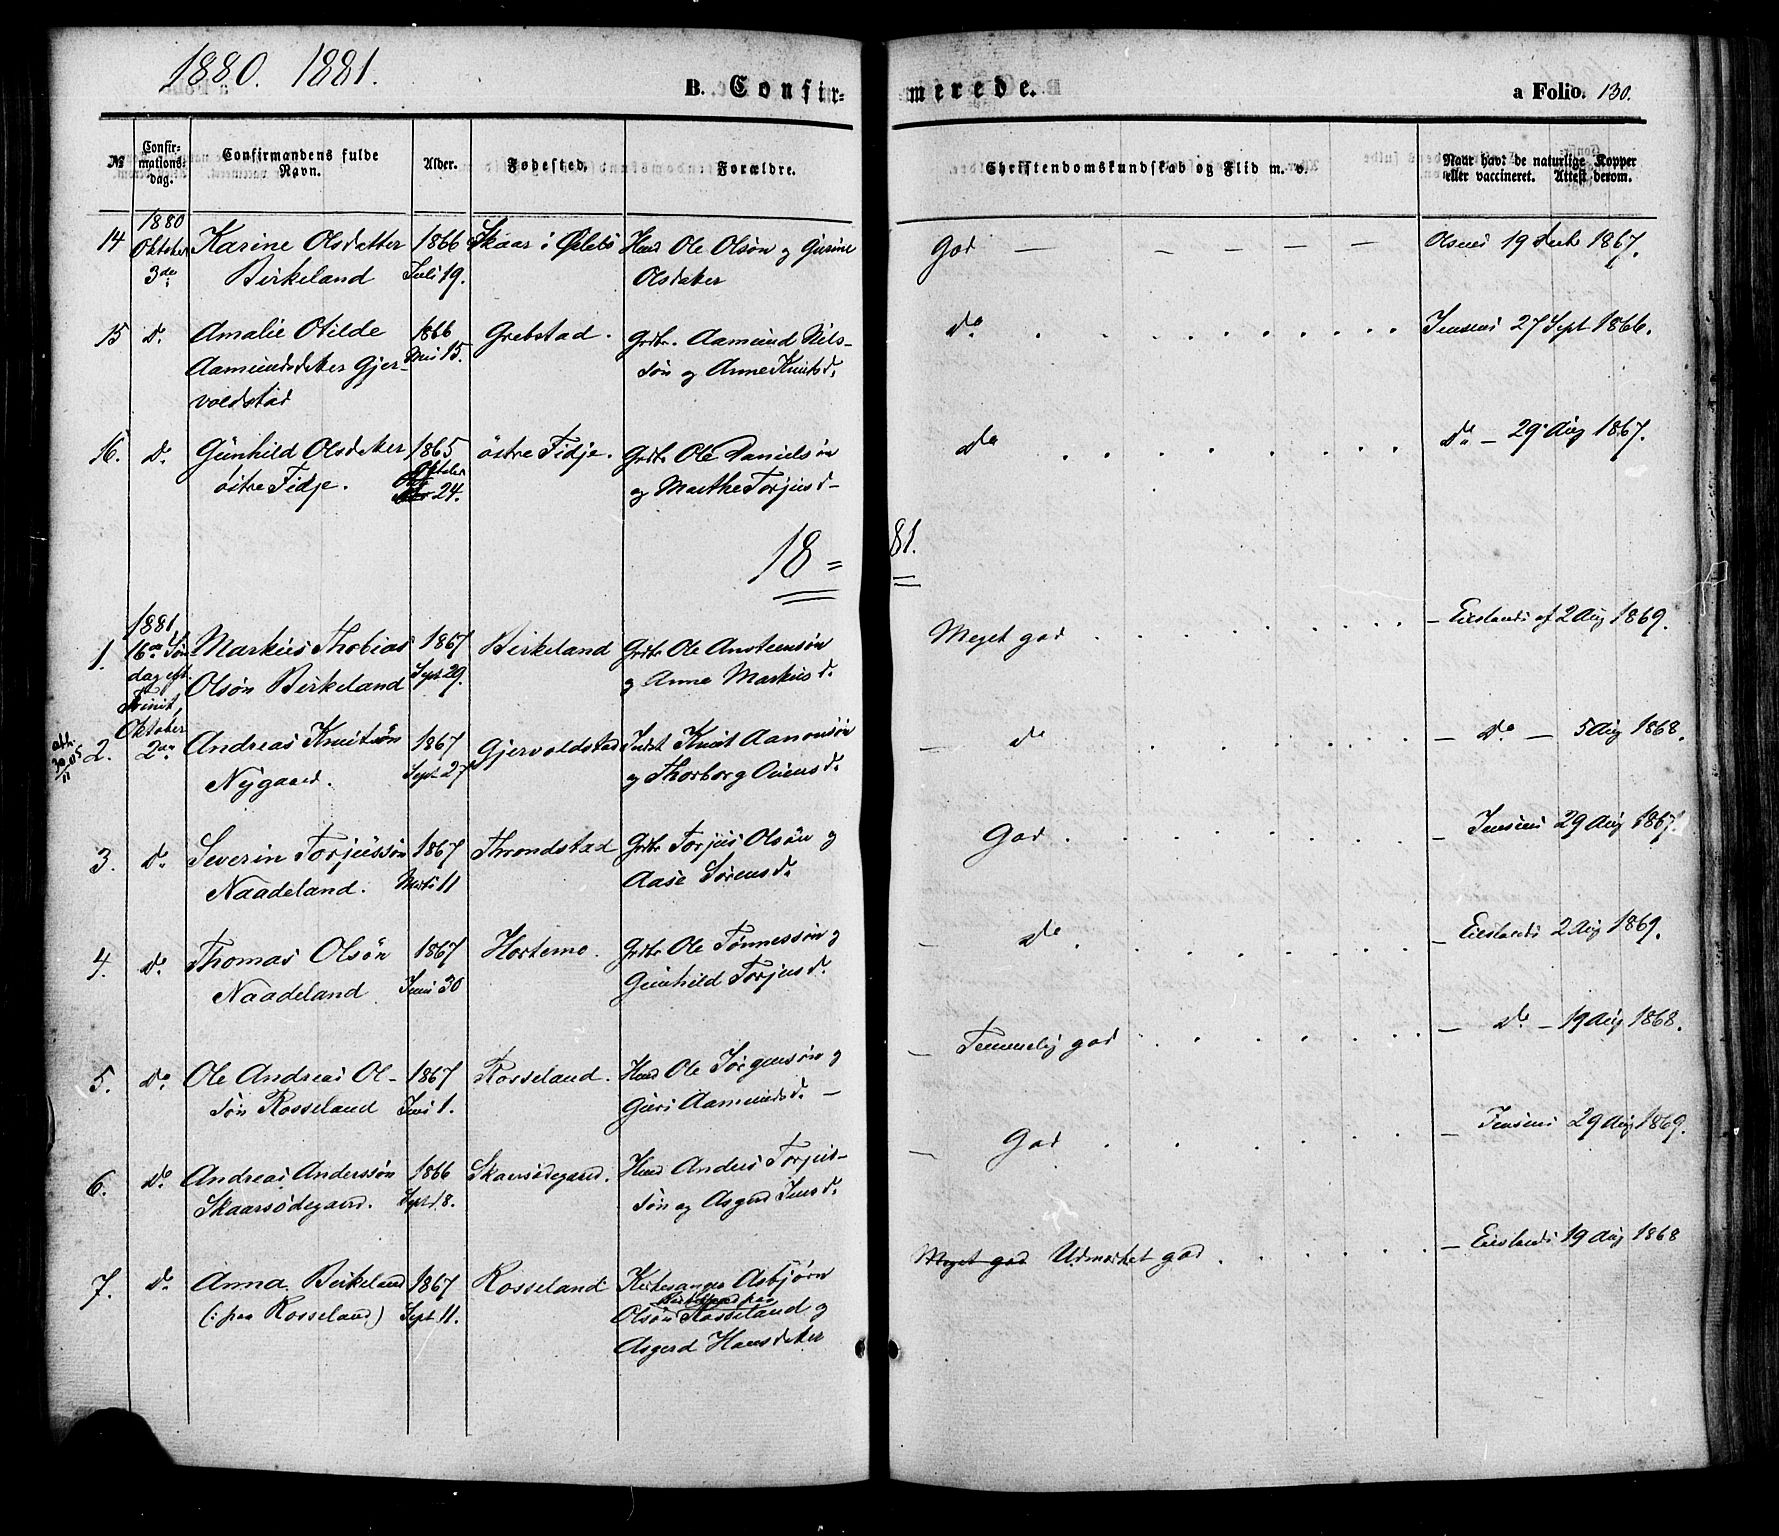 1880. 1881.
B. Confir-
merede.
a Folio. 130.
№
Confir-
mations-
dag.
Confirmandens fulde
Navn.
Alder.
Fødested.
Forældre.
Christendomskundskab og Flid m. v.
Naar havt de naturlige Kopper
eller vaccineret. Attest derom.
14
1880
Oktober
3de
Karine Olsdatter
Birkeland
1866
Juli 19.
Skaar i Øslebø
Husd Ole Olsøn og Gurine
Olsdatter
God — — — — —
Olsens 19 1867.
15
Do
Amalie Otilde
Aamundsdatter Gjer-
voldstad
1866
15.
Grebstad.
Grdbr. Aamund Nils-
søn og Anne Knutsd.
Do
Jensens 27 Sept 1866.
16.
Do
Gunhild Olsdatter
østre Fidje.
1865
Oktober
24.
østre Fidje.
Grdbr Ole Danielsøn
og Marthe Torjusd—
Do
Do — 29 Aug 1867.
18=
81.
1.
1881
16de Søn
dag eft.
Trinit,
Oktober
2den
Markus Thobias
Olsøn Birkeland
1867
Sept 29.
Birkeland
Grdbr Ole Anstensøn
og Anne Markusd.
Meget god
— Eieslands af 2 Aug 1869.
att.
30/11 05
2.
Andreas Knutsøn
Nygaard.
1867
Sept 27
Gjervoldstad
Indst Knut Aanonsøn
og Thorborg Ommesd.
— Do
— Do — 5 Aug 1868.
3.
Do
Severin Torjussøn
Naadeland.
1867
Marts 11
Throndstad
Grdbr Torjus Olsøn og
Aase Sørensd.
God
— Jensens 29 Aug 1867.
4.
Do
Thomas Olsøn
Naadeland
1867
Juni 30
Hortemo.
Grdbr Ole Tønnessøn og
Gunhild Torjusd.
— Do
— Eieslands 2 Aug 1869.
5.
Do
Ole Andreas Ol-
søn Rosseland
1867
Juni 1.
Rosseland.
Husd Ole Jørgensøn og
Guri Aamundsd. —
— Temmelig god
— Do — 19 Aug 1868.
6.
Do
Andreas Anderssøn
Skaarsødegaard.
1866
Septd 8.
Skaarsødegaard.
Husd Anders Torjus-
søn og Asgerd Jensd.
— God
— Jensens 29 Aug 1869.
7.
Do
Anna Birkeland
(: paa Rosseland)
1867
Sept 11.
Rosseland
Kirkesanger Asbjørn
Birkeland paa
Olsøn Rosseland og
Asgerd Hansdatter
Meget god Udmærket god
— Eieslands 19 Aug 1868